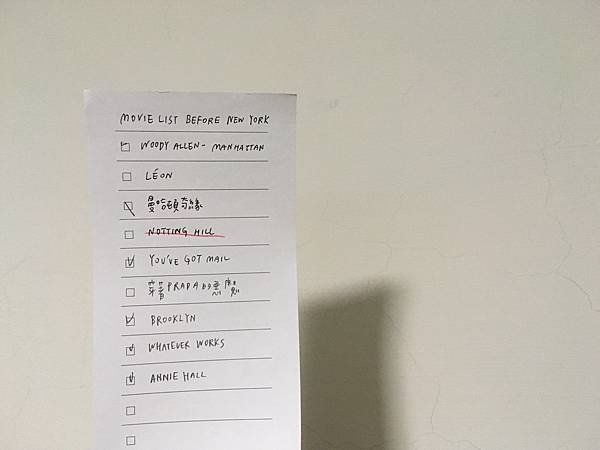 MOVIE LIST BEFORE NEW YORK
WOODY ALLEN - MANHATTAN
LÉON
曼哈頓奇緣
NOTTING HILL
YOU'VE GOT MAIL
穿著PRADA的惡魔
BROOKLYN
WHATEVER WORKS
ANNIE HALL